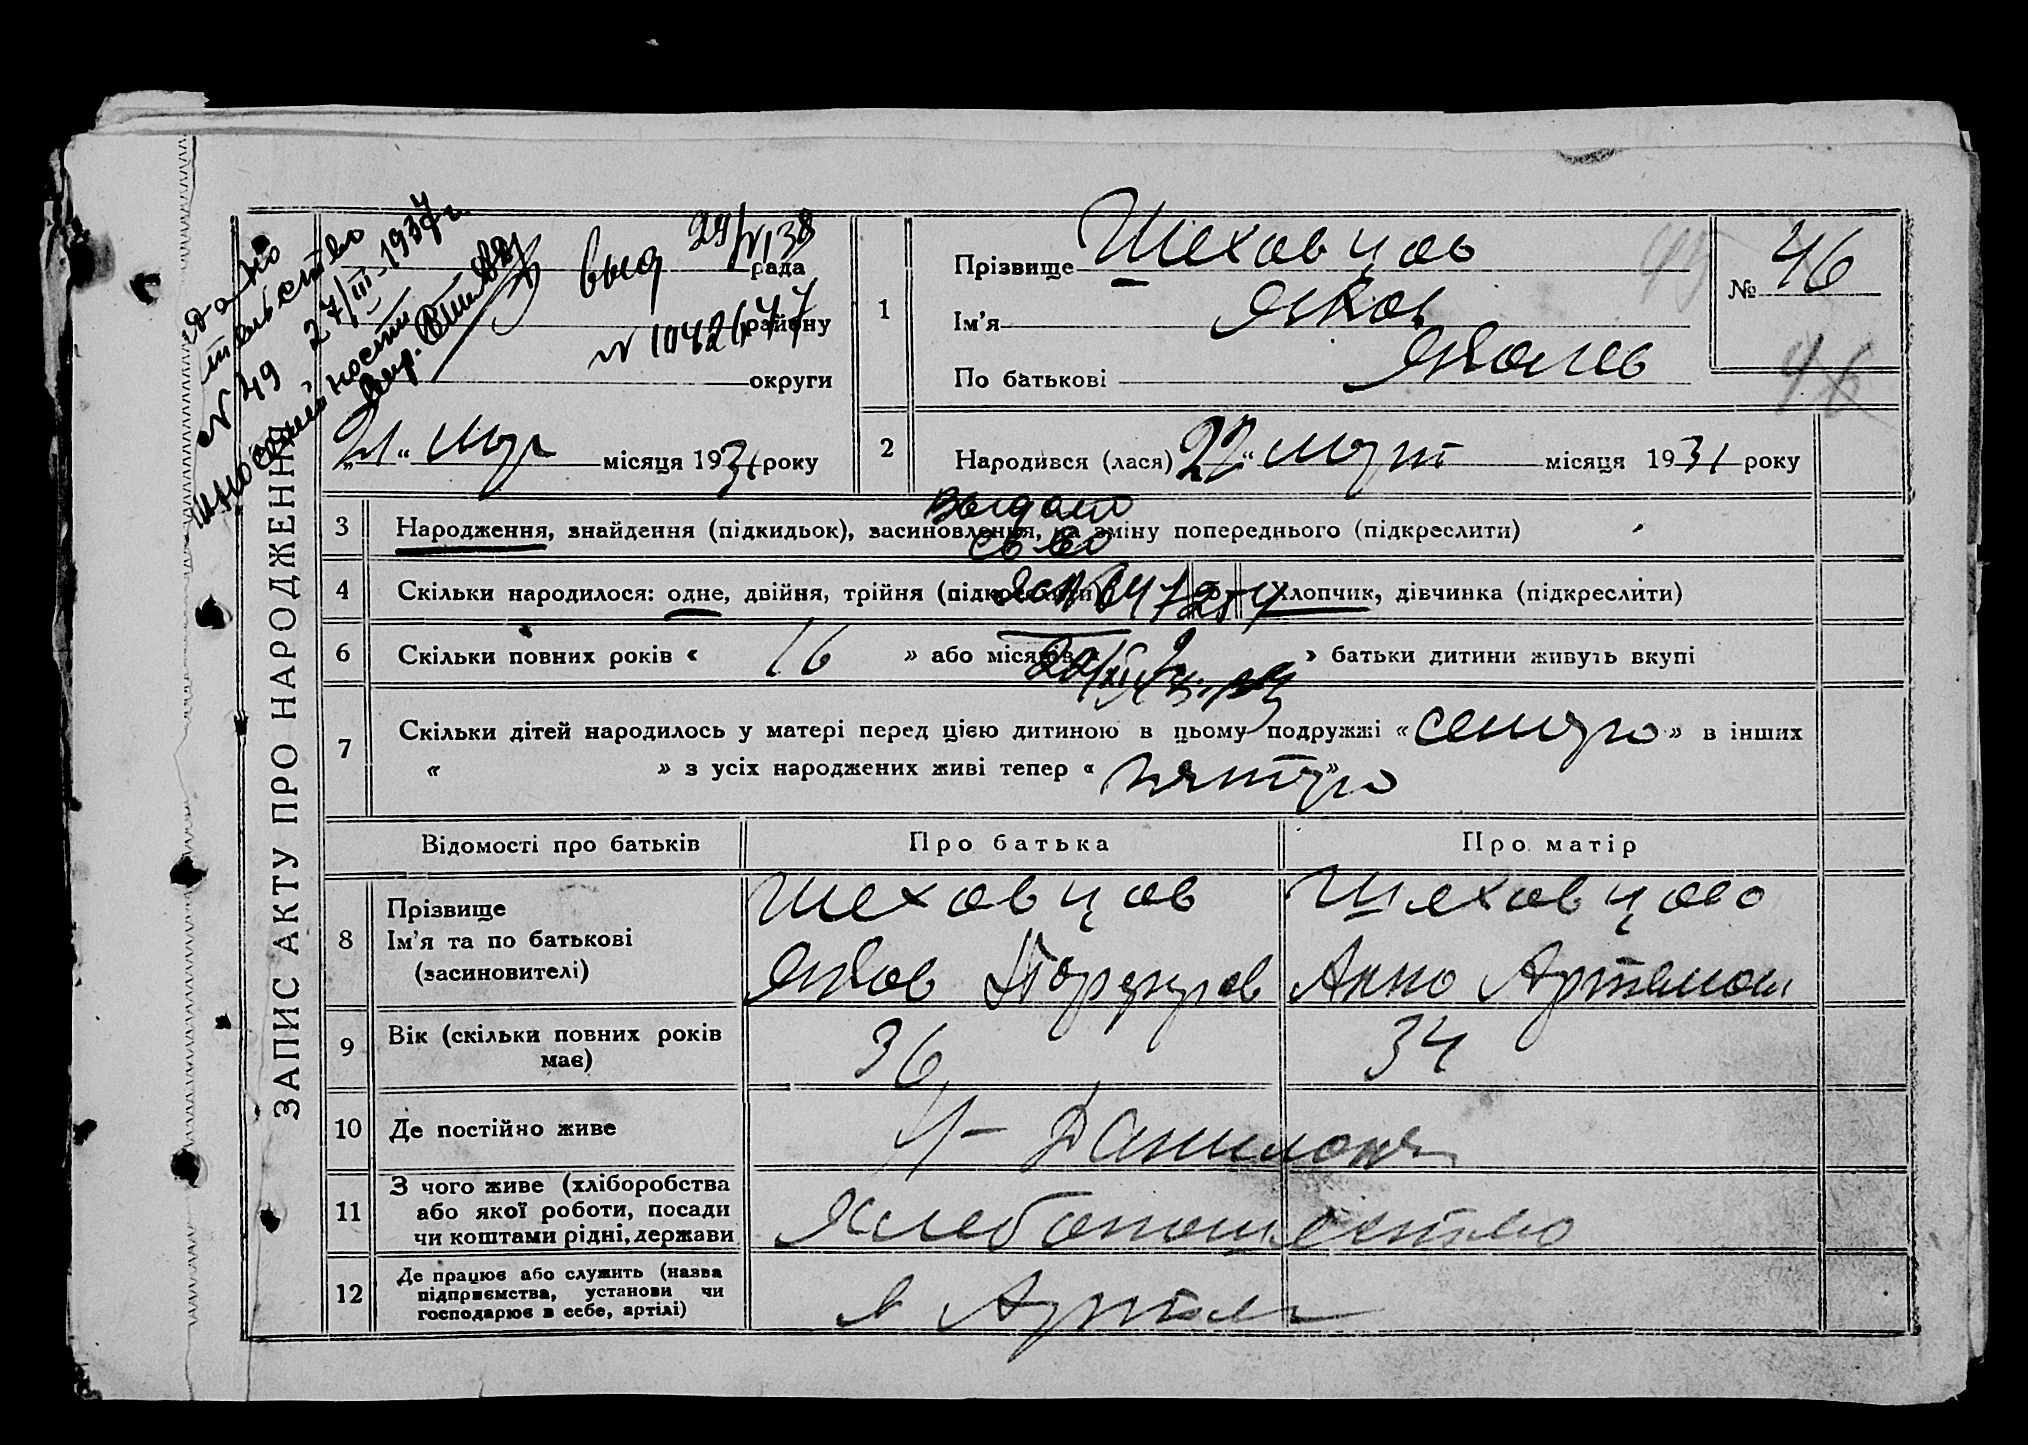 ЗАПИС АКТУ ПРО НАРОДЖЕННЯ
выд 29/VI 38
рада
№ 10426
району
округи
№ 49 27/III-1937 г.
„21“ мар місяця 1931 року
1
Прізвище Шеховцов
Ім’я Яков
По батькові Яковлев
№ 46
46
2
Народився (лася) 22“ март місяця 1931 року
Выдано
3 Народження, знайдення (підкидьок), засиновлення, на зміну попереднього (підкреслити)
св во
4 Скільки народилося: одне, двійня, трійня (підкреслити) хлопчик, дівчинка (підкреслити)
6 Скільки повних років « 16 » або місяців « » батьки дитини живуть вкупі
7 Скільки дітей народилось у матері перед цією дитиною в цьому подружжі « семеро » в інших
« » з усіх народжених живі тепер « пятеро »
Відомості про батьків Про батька Про матір
8 Прізвище
Ім’я та по батькові
(засиновителі)
Шеховцов
Яков
Шеховцова
Анна Артемов
9 Вік (скільки повних років має) 36 34
10 Де постійно живе Даниловка
11 З чого живе (хліборобства
або якої роботи, посади
чи коштами рідні, держави
Хлебопашество
12 Де працює або служить (назва
підприємства, установи чи
господарює в себе, артілі)
в Артели